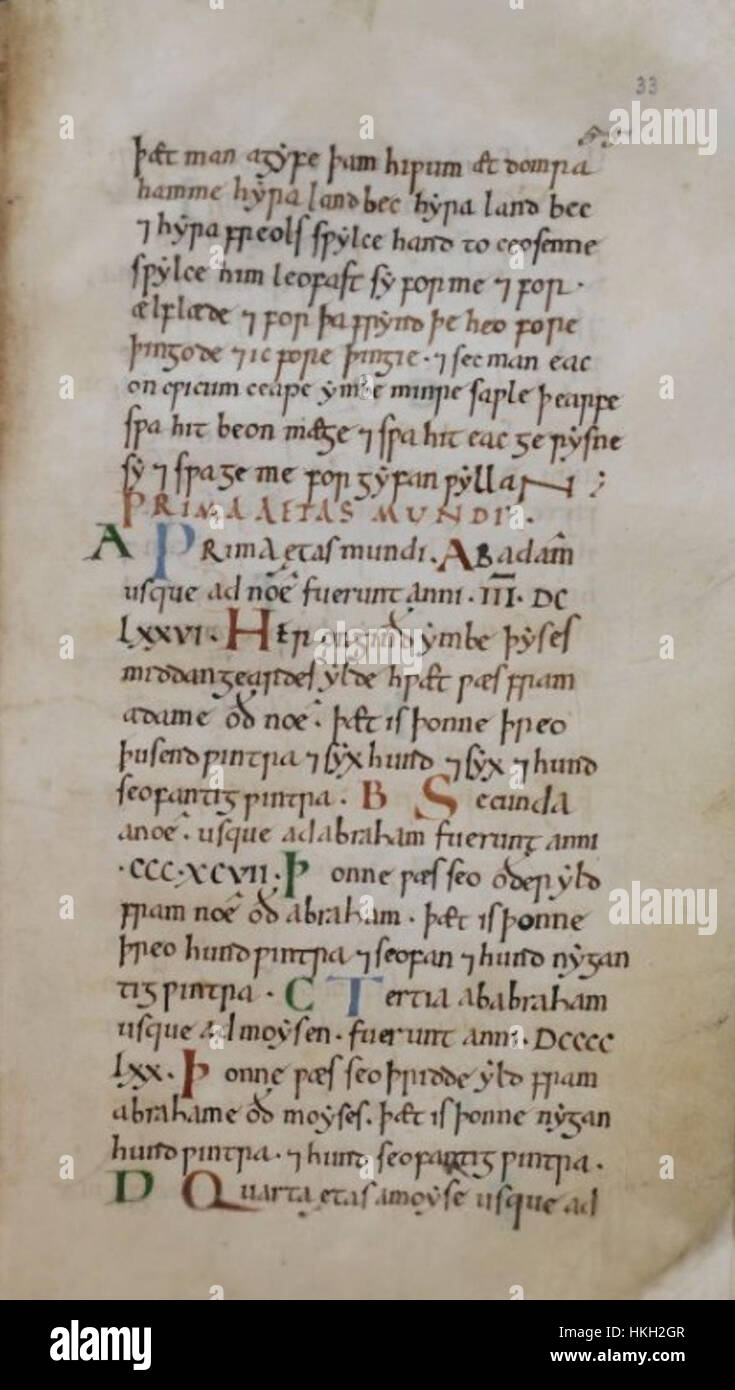 33
þæt man agyfe þam hiƿum æt domra
hamme hyra landbec hyra land bec
⁊ hyra freols sƿylce hand to ceosenne
sƿylce him leofast sy for me ⁊ for ·
ælflæde ⁊ for þa frynd þe heo fore
þingode ⁊ ic fore þingie · ⁊ sec man eac
on cƿicum ceape ymbe minre saƿle þearfe
sƿa hit beon mæge ⁊ sƿa hit eac ge rysne
sy ⁊ sƿa ge me for gyfan ƿyllaN ;
PRIMA AETAS MUNDI .
A PRima ętas mundi . ABadam
usque ad noe fuerunt anni · III · DC
LXXVI · HER ongind ymbe þyses
middangeardes ylde hƿæt ƿæs fram
adame oð noe · þæt is þonne þreo
þusend ƿintra ⁊ syx hund ⁊ syx ⁊ hund
seofantig ƿintra . B Secunda
a noe · usque ad abraham fuerunt anni
· CCC · XCVII · Þonne ƿæs seo oðer yld
fram noe oð abraham · þæt is þonne
þreo hund ƿintra ⁊ seofan ⁊ hund nygan
tig ƿintra · C Tertia ab abraham
usque ad moysen · fuerunt anni · DCCCC
LXX · Þonne ƿæs seo þridde yld fram
abrahame oð moyses . þæt is þonne nygan
hund ƿintra · ⁊ hund seofantig ƿintra .
D Quarta ętas a moyse usque ad
alamy
alamy
Image ID: HKH2GR
www.alamy.com